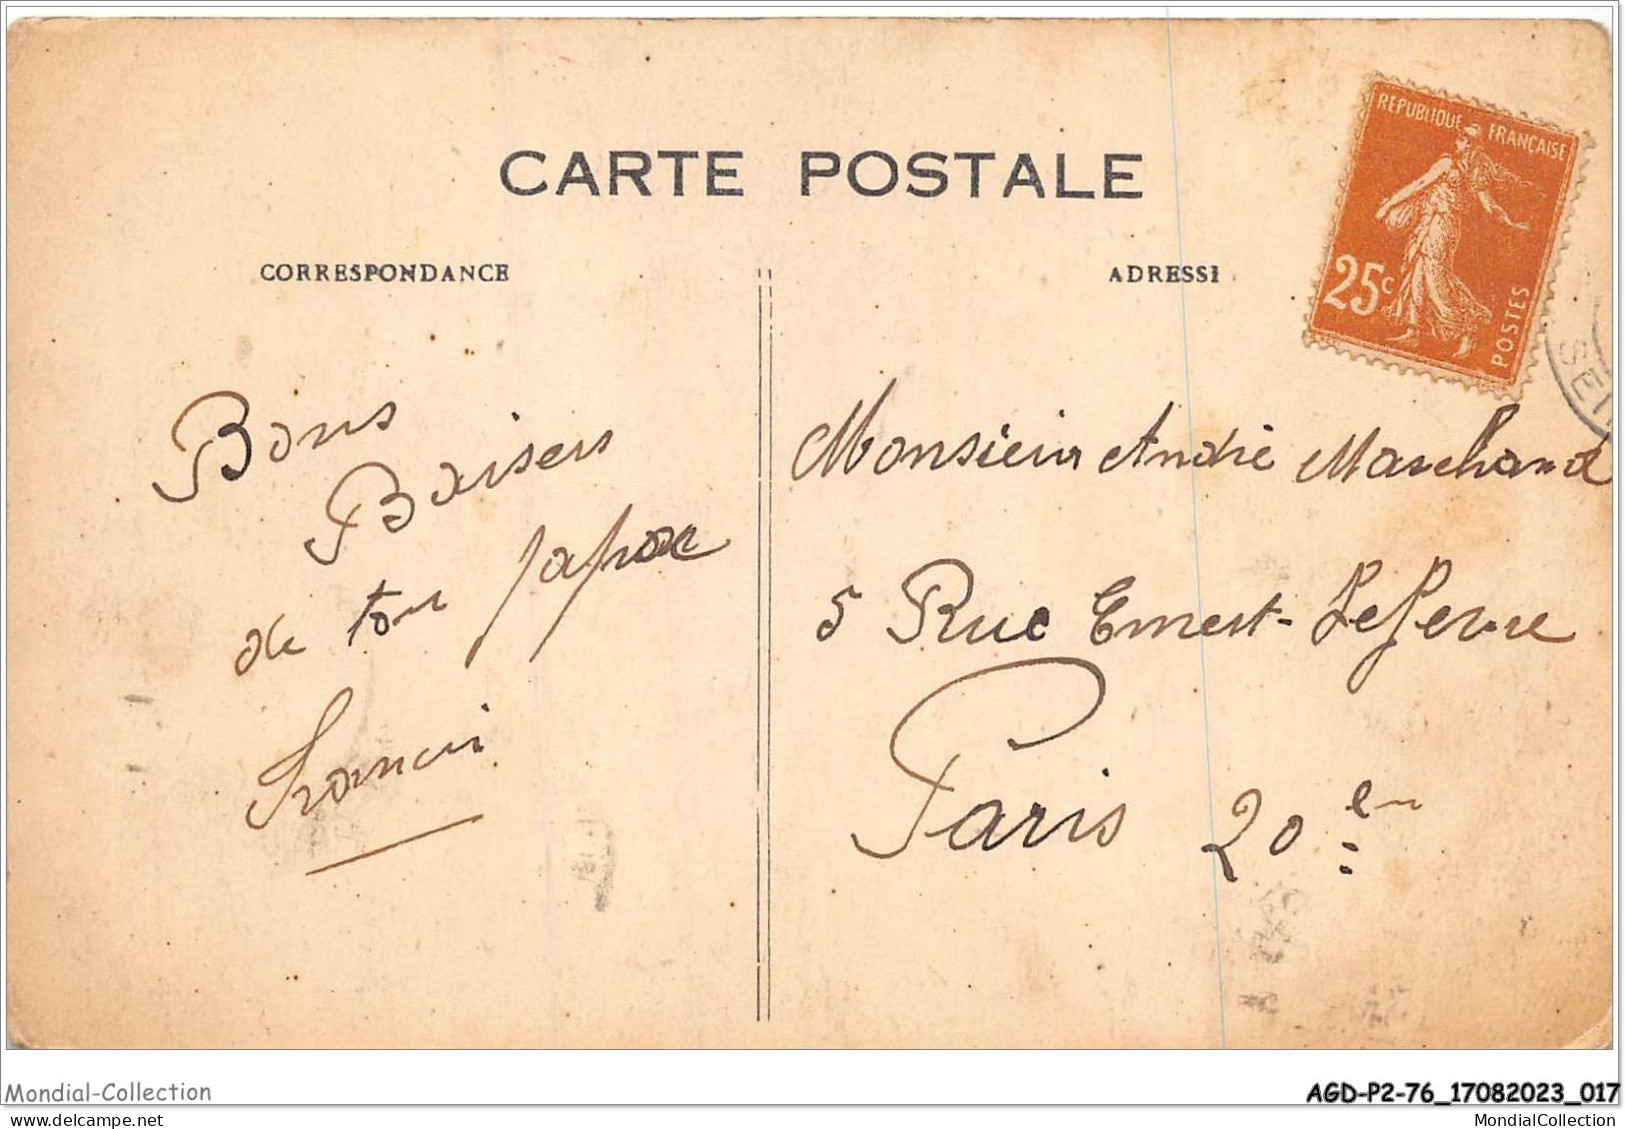 CARTE POSTALE
CORRESPONDANCE
ADRESSE
REPUBLIQUE FRANÇAISE
25c
POSTES
SEIN
Bons
Baisers
de ton
Francis
Monsieur André Marchand
5 Rue Ernest-Lefevre
Paris 20em
Mondial-Collection
AGD-P2-76_17082023_017
MondialCollection